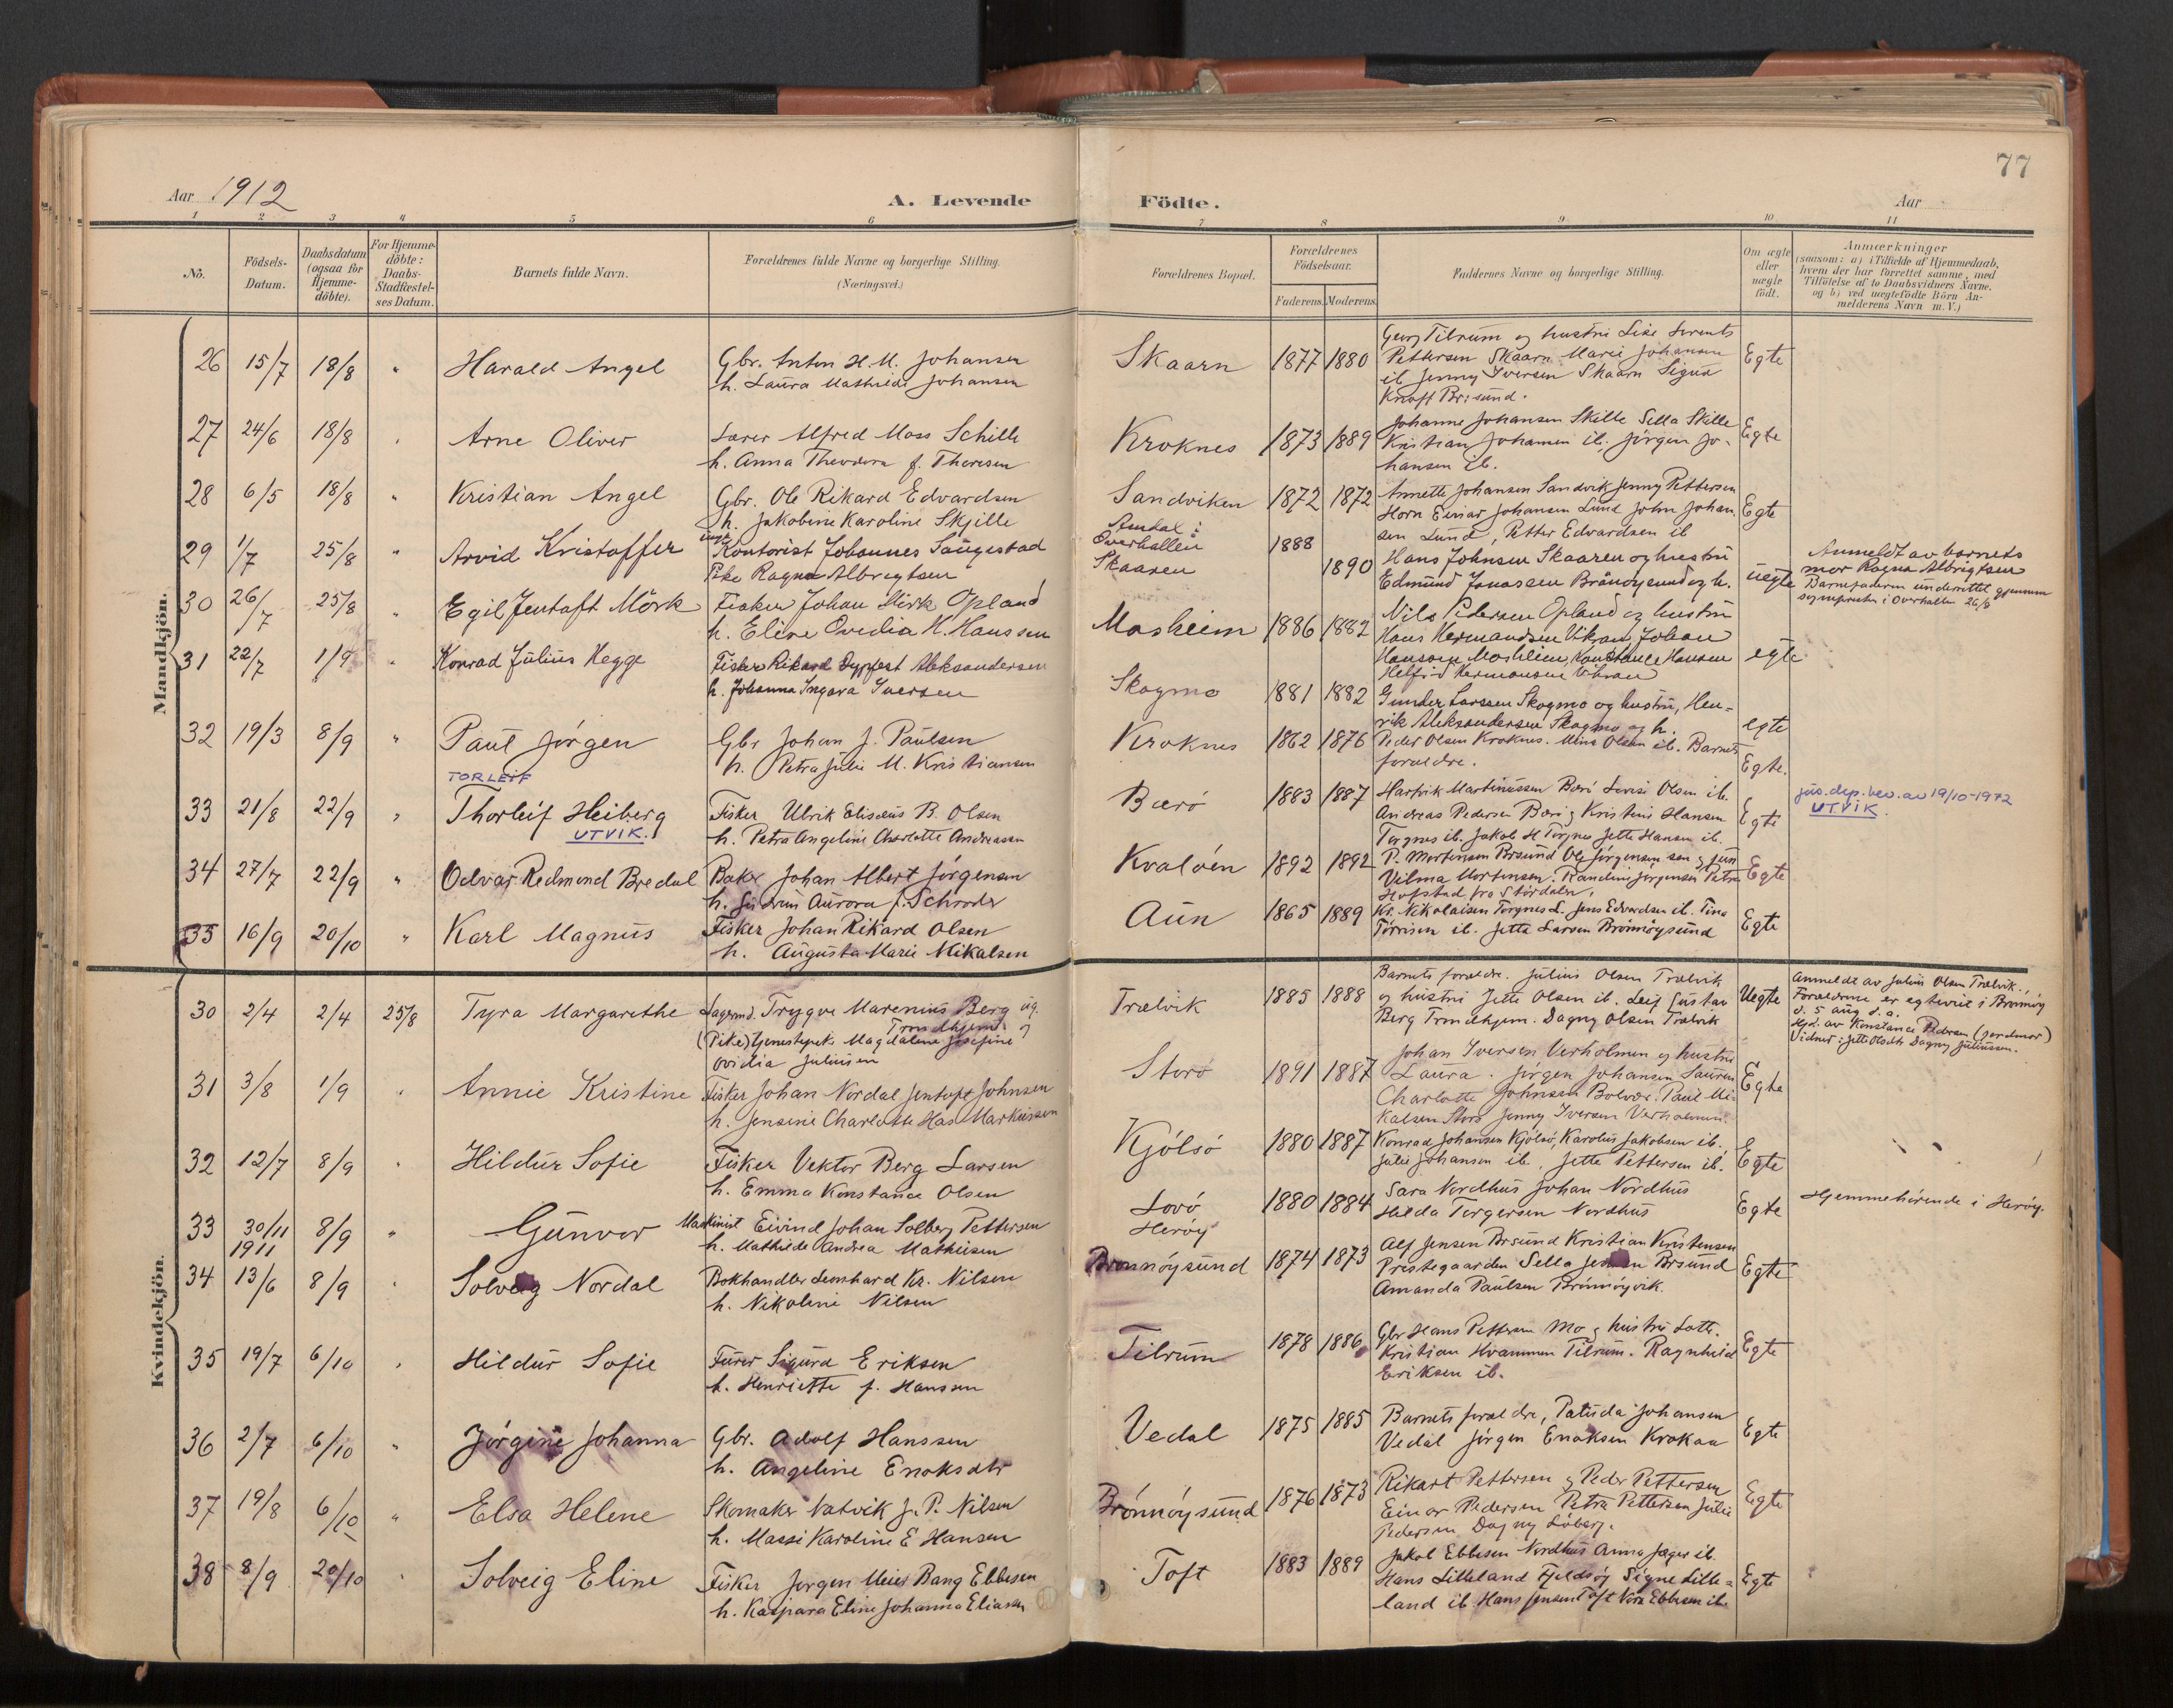 77
Aar 1912
A. Levende
Födte.
Aar
1 2 3 4 5 6 7 8 9 10 11
No.
Födsels-Datum.
Daabsdatum (ogsaa for Hjemme-döbte).
For Hjemme-döbte: Daabs-Stadfæstel-ses Datum.
Barnets fulde Navn.
Forældrenes fulde Navne og borgerlige Stilling.
(Næringsvei.)
Forældrenes Bopæl.
Forældrenes Födselsaar.
Faderens. Moderens.
Faddernes Navne og borgerlige Stilling.
Om ægte eller uægte födt.
Anmærkninger
(saasom: a) i Tilfælde af Hjemmedaab,
hvem der har forrettet samme, med
Tilföielse af to Daabsvidners Navne,
og b) ved uægtefödte Börn An-
melderens Navn m. V.)
Mandkjön.
26 15/7 18/8 " Harald Angel
Gbr. Anton H. M. Johansen
h. Laura Mathilde Johansen
Skaarn 1877 1880
Georg Tilrum og hustru Lise
Pettersen Skaarn Marie Johansen
ib. Jenny Iversen Skaarn Sigurd
Knoft Br:sund.
Egte
27 24/6 18/8 " Arne Oliver
Lærer Alfred Moss Schille
h. Anna Theodora f. Thoresen
Kroknes 1873 1889
Johanne Johansen Skille Sella Skille
Kristian Johansen ib. Jörgen Jo-
hansen ib.
Egte
28 6/5 18/8 " Kristian Angel
Gbr. Ole Rikard Edvardsen
h. Jakobine Karoline Skjille
Sandviken 1872 1872
Annette Johansen Sandvik Jenny Pettersen
Horn Einar Johansen Lund John Johan
sen Lund, Petter Edvardsen ib
Egte
29 1/7 25/8 " Arvid Kristoffer
ungk. Kontorist Johannes Saugestad
Pike Ragna Albregtsen
Overhallen
Skaaren
1888 1890
Hans Johnsen Skaaren og hustru
Edmund Jonassen Brönöysund og h.
uegte
Anmeldt av barnets
mor Ragna Albrigtsen
Barnefaderen underrettet gjennem
sogneprsten i Overhallen 26/8
30 26/7 25/8 " Egil Jentoft Mörk
Fisker Johan Mörk Opland
h. Eline Ovidia H. Hanssen
Mosheim 1886 1882
Nils Pedersen Opland og hustru
Hans Hermandsen Vikran Johan
Hanssen Moshlem, Konstance Hansen
Helfrid Hermansen Vikran
egte
31 22/7 1/9 " Konrad Julius Hegge
Fisker Rikard Dypfest Aleksandersen
h. Johanna Ingara Iversen
Skogmo 1881 1882
Gunder Larssen Skogmo og hustru, Hen-
rik Aleksandersen Skogmo og h.
egte
32 19/3 8/9 " Paul Jörgen
Gbr Johan J. Paulsen
h. Petra Julie M. Kristiansen
Kroknes 1862 1876
Peder Olsen Kroknes. Mina Olsen ib. Barnets
foraldre.
Egte.
TORLEIF
33 21/8 22/9 " Thorleif Heiberg
UTVIK.
Fisker Ulrik Elisæus B. Olsen
h. Petra Angeline Charlotte Andreassen
Bærö 1883 1887
Hartvik Martinussen Bærö Lovise Olsen ib.
Andreas Pedersen Bærö, Kristine Hansen
Torgnes ib. Jakob H Torgnes Jette Hansen ib.
Egte
jus.dep.bev. av 19/10-1972
UTVIK.
34 27/7 22/9 " Odvar Redmond Bredal
Baker Johan Albert Jörgensen
h. Gudrun Aurora f. Schrøder
Kvalöen 1892 1892
P. Mortensen Brsund Ole Jörgensen sen og jun
Vilma Mortensen. Randine Jörgensen Petra
Hofstad fra Stördalen.
Egte
35 16/9 20/10 " Karl Magnus
Fisker Johan Rikard Olsen
h. Augusta Marie Mikalsen
Aun 1865 1889
Kr. Nikolaisen Torgnes L. Jens Edvardsen ib. Tina
Törrisen ib. Jetta Larsen Brönnöysund
Egte
Kvindekjön.
30 2/4 2/4 25/8 Tyra Margarethe
Lagermd. Trygve Marenius Berg ug.
Trondhjem
(Pike) tjenestepik. Magdalena Josefine
Ovidia Juliussen
Trælvik 1885 1888
Barnets foraldre. Julius Olsen Trælvik
og hustru Jette Olsen ib. Leif Gustav
Berg Trondhjem. Dagny Olsen Trælvik
Uegte
Anmeldt av Julius Olsen Trælvik.
Foraldrene er egteviet i Brønnöy
d. 5 aug d. a.
Hjd. av Konstance Pedersen (jordmor)
Vidner: Jette Olsdtr Dagny Juliussen.
31 3/8 1/9 " Annie Kristine
Fisker Johan Nordal Jentoft Johnsen
h. Jensine Charlotte Has Markussen
Storö 1891 1887
Johan Iversen Verholmen og hustru
Laura. Jörgen Johansen Sauren
Charlotte Johnsen Bolvær. Paul Mi-
kalsen Storö Jenny Iversen Verholmen.
Egte
32 12/7 8/9 " Hildur Sofie
Fisker Vektor Berg Larsen
h. Emma Konstance Olsen
Kjölsö 1880 1887
Konrad Johansen Kjölsö, Karolus Jakobsen ib.
Julie Johansen ib. Jette Pettersen ib.
Egte
33 30/11 1911 8/9 " Gunvor
Maskinist Eivind Johan Solberg Pettersen
h. Mathilde Andrea Mathisen
Lovö
Heröy
1880 1884
Sara Nordhus Johan Nordhus
Hilda Torgersen Nordhus
Egte
Hjemmehörende i Heröy.
34 13/6 8/9 " Solveig Nordal
Bokhandler Lennhard Kr. Nilsen
h. Nikoline Nilsen
Brönnöysund 1874 1873
Alf Jensen Brsund Kristian Kristensen
Prestegaarden Sella Jensen Brsund
Amanda Paulsen Brönnöyvik.
Egte
35 19/7 6/10 " Hildur Sofie
Furer Sigurd Eriksen
h. Henriette f. Hanssen
Tilrum 1878 1886
Gbr Hans Pettersen Mo og hustru Lotte.
Kristian Hvammen Tilrum. Ragnhild
Eriksen ib.
Egte
36 2/7 6/10 " Jörgine Johanna
Gbr. Adolf Hanssen
h. Angeline Enoksdtr
Vedal 1875 1885
Barnets foraldre, Paluda Johansen
Vedal Jörgen Enoksen Krokaa
Egte
37 19/8 6/10 " Elsa Helene
Skomaker Natvik J. P. Nilsen
h. Massi Karoline E Hansen
Brönnöysund 1876 1873
Rikart Pettersen og Peder Pettersen
Einar Pedersen Petra Pettersen Julie
Pedersen Dagny Löberg.
Egte
38 8/9 20/10 " Solveig Eline
Fisker Jörgen Meier Bang Ebbesen
h. Kaspara Eline Johanna Eliassen
Toft 1883 1889
Jakob Ebbesen Nordhus Anna Jæger ib.
Hans Lilleland Fjeldsöy Signe Lille=
land ib. Hans Jensen Toft Nora Ebbesen ib.
Egte